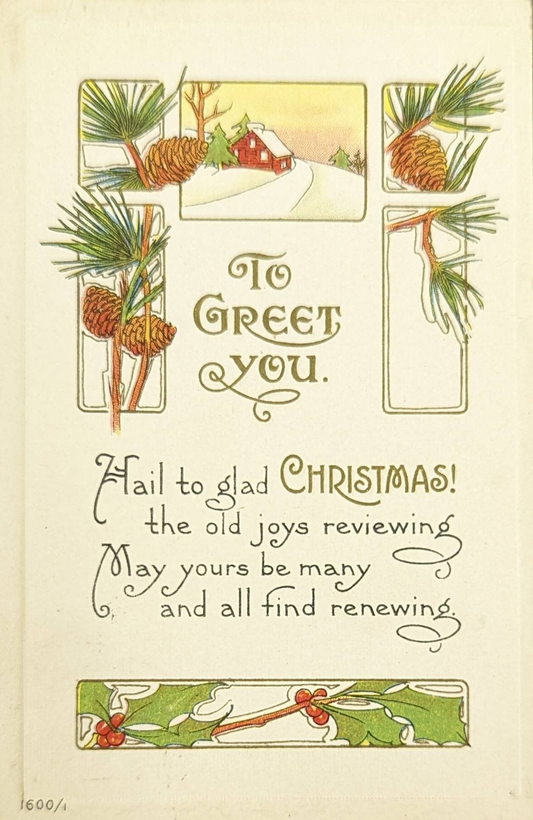 To
Greet
you.
Hail to glad Christmas!
the old joys reviewing
May yours be many
and all find renewing.
1600/1